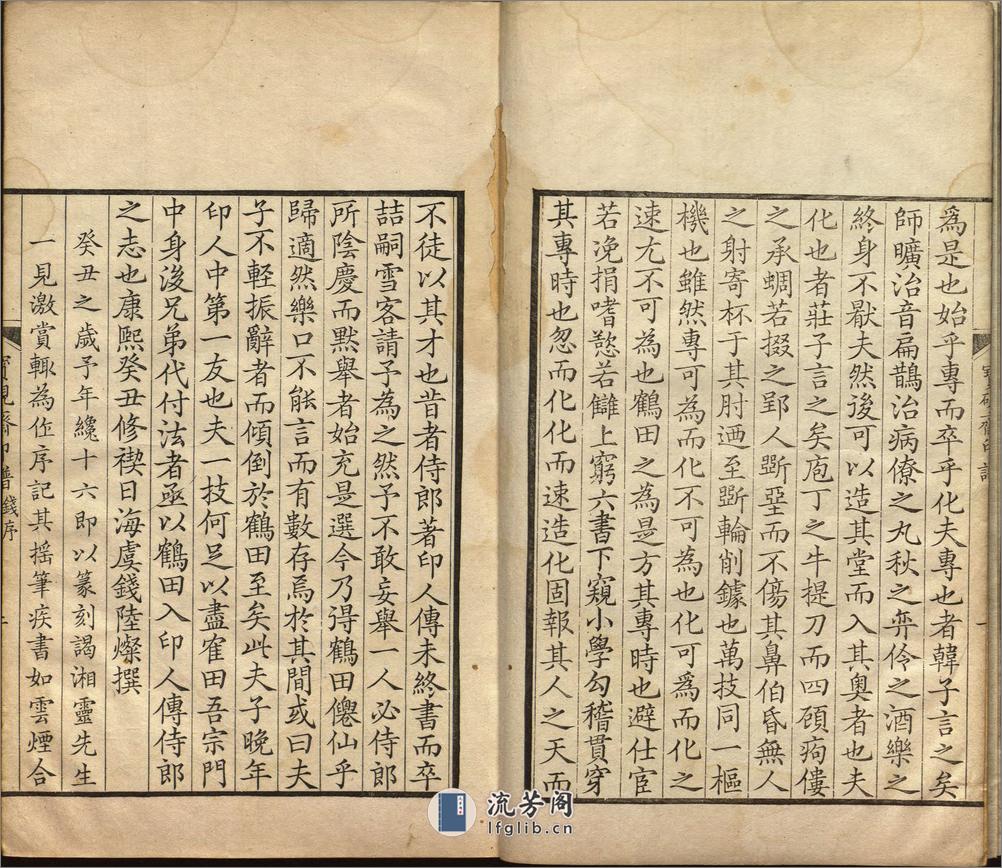 為是也始乎專而卒乎化夫專也者韓子言之矣
師曠治音扁鵲治病僚之丸秋之弈伶之酒樂之
終身不厭夫然後可以造其堂而入其奧者也夫
化也者莊子言之矣庖丁之牛提刀而四顧痀僂
之承蜩若掇之郢人斲堊而不傷其鼻伯昏無人
之射寄杯于其肘迺至斲輪削鐻也萬技同一樞
機也雖然專可為而化不可為也化可為而化之
速尤不可為也鶴田之為是方其專時也避仕宦
若浼捐嗜慾若讎上窮六書下窺小學勾稽貫穿
其專時也忽而化化而速造化固報其人之天而
不徒以其才也昔者侍郎著印人傳未終書而卒
喆嗣雪客請予為之然予不敢妄舉一人必侍郎
所陰慶而默舉者始充是選今乃得鶴田僊仙乎
歸適然樂口不能言而有數存焉於其間或曰夫
子不輕振辭者而傾倒於鶴田至矣此夫子晚年
印人中第一友也夫一技何足以盡隺田吾宗門
中身後兄弟代付法者亟以鶴田入印人傳侍郎
之志也康熙癸丑修禊日海虞錢陸燦撰
癸丑之歲予年纔十六即以篆刻謁湘靈先生
一見激賞輒為作序記其搖筆疾書如雲煙合
寶硯齋印譜
錢序
流芳阁
lfglib.cn